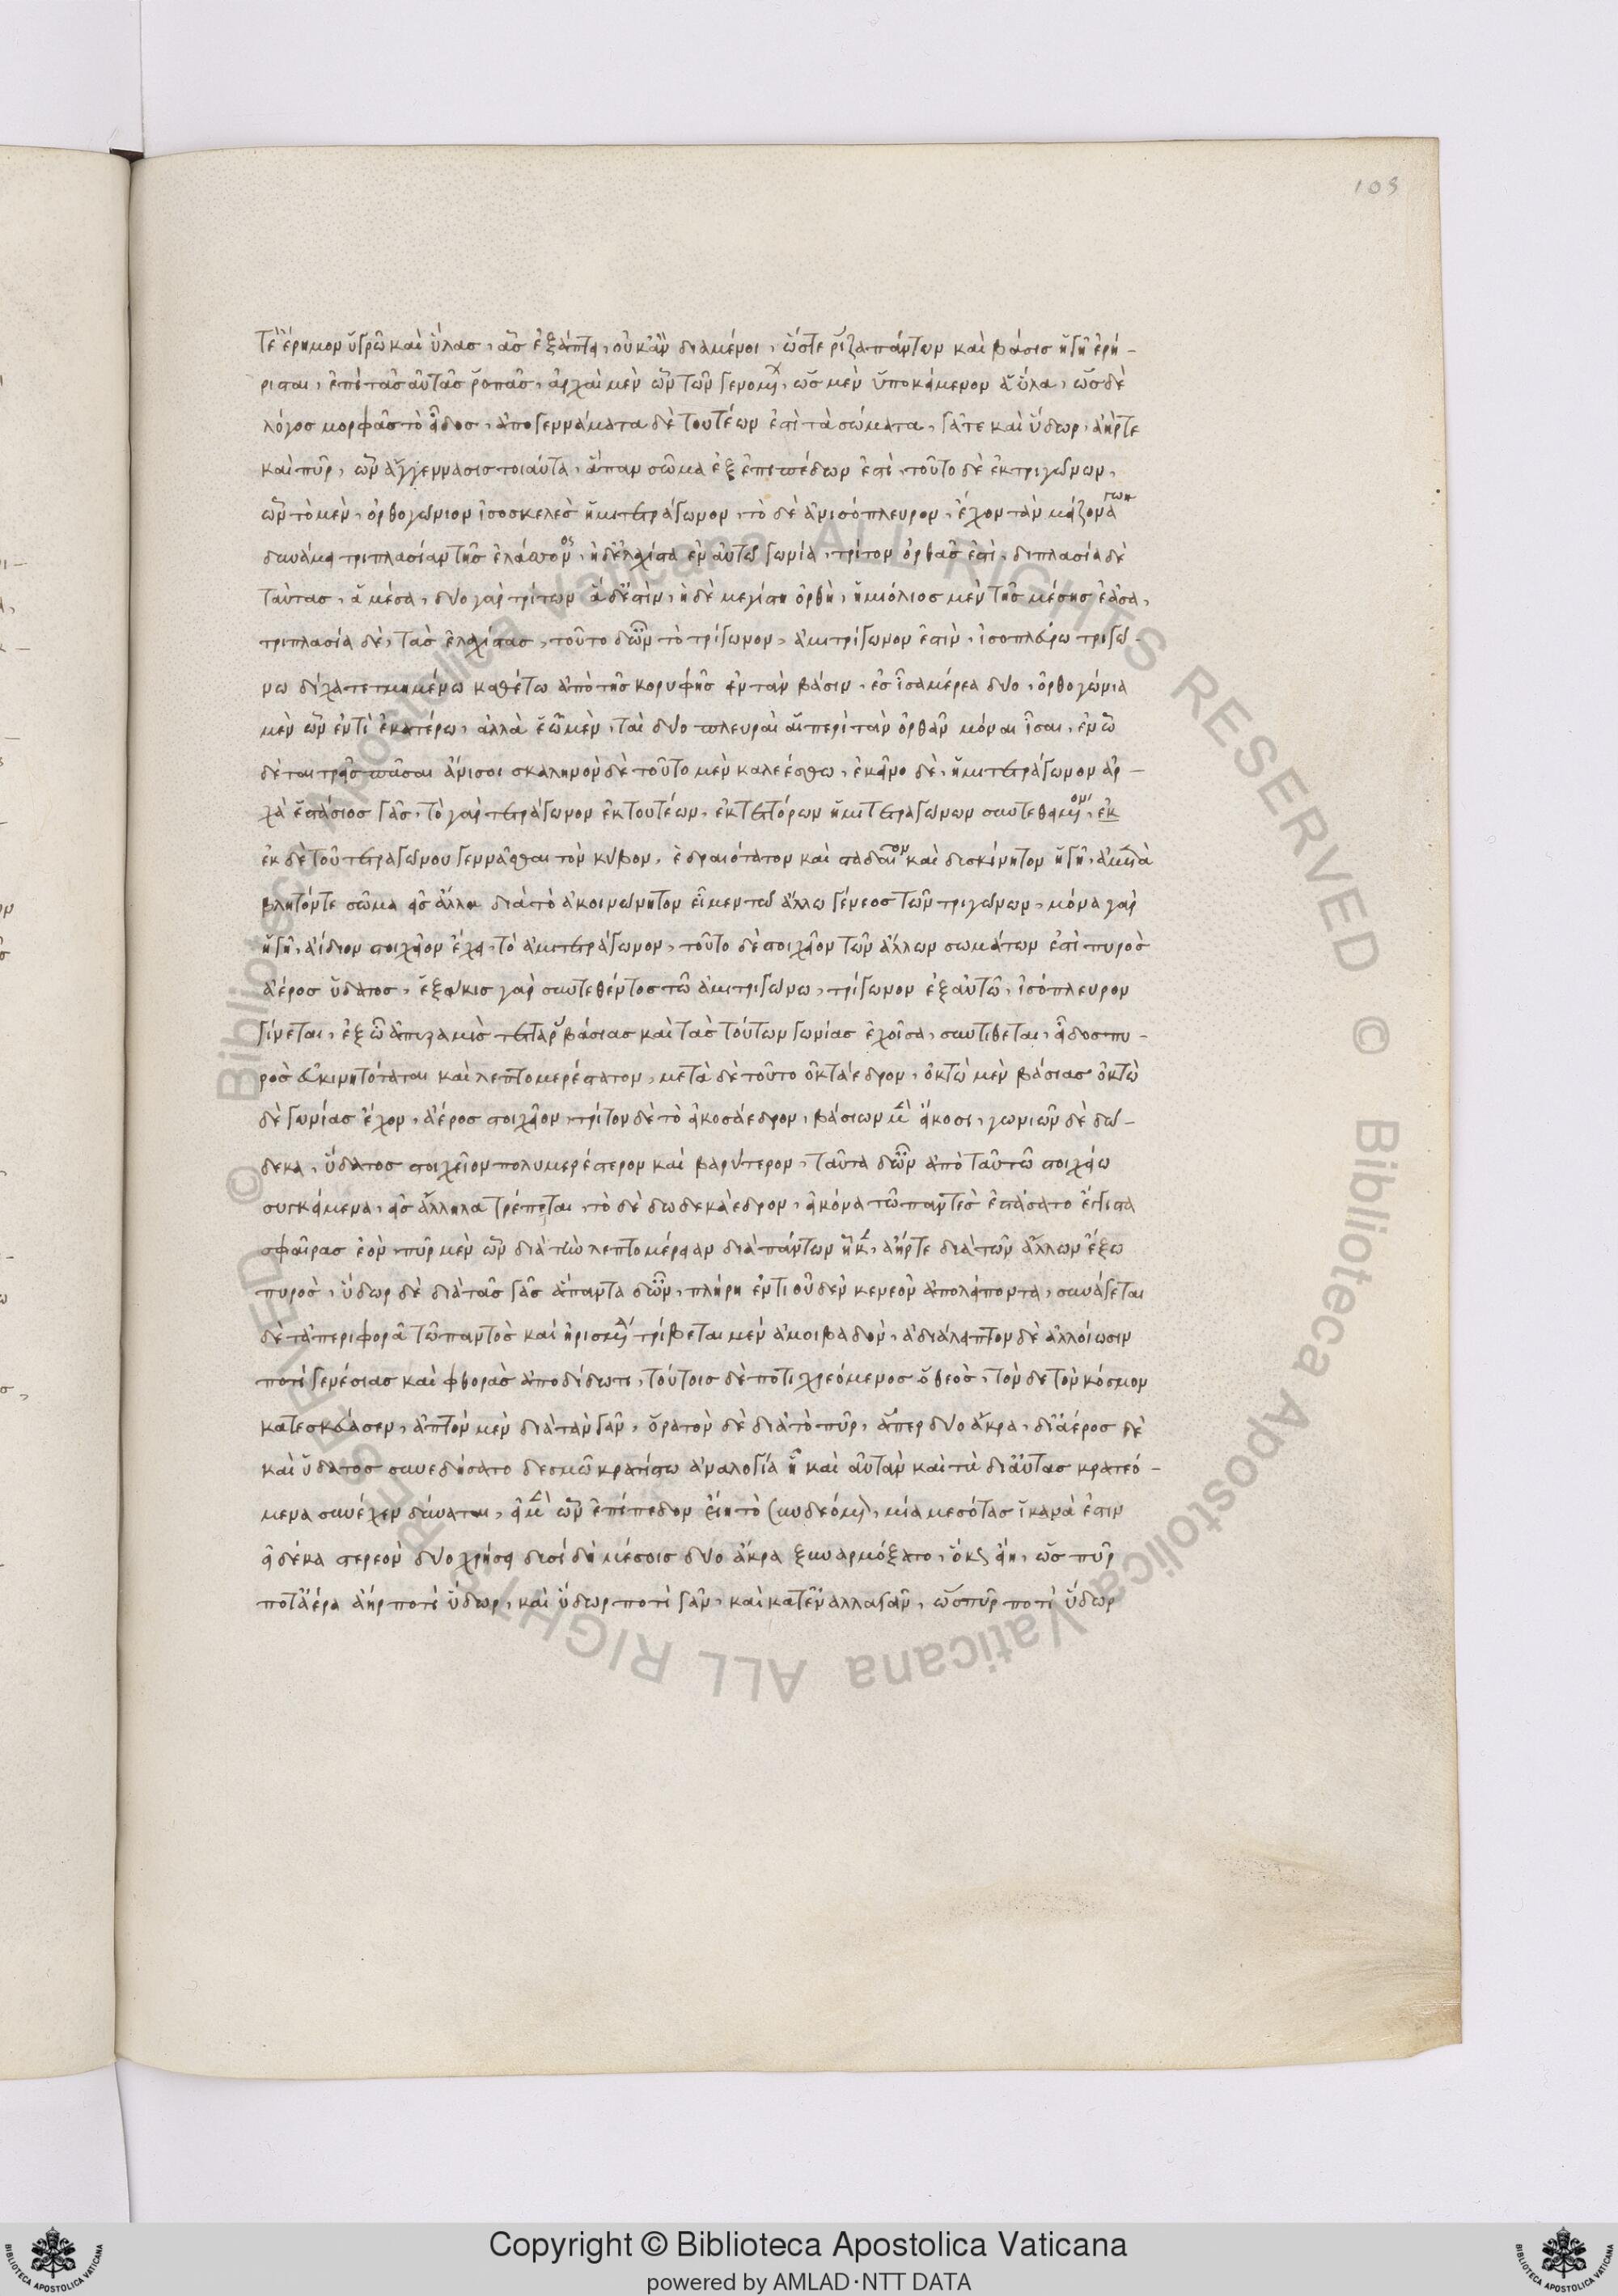 109
τε ἔρημον ὑγρῶ καὶ ὕλας, ἇς ἐξάπτει, οὐκ ἂν διαμένοι, ὥστε ῥίζα πάντων καὶ βάσις ἡ γῆ ἐρή-
ρισται, ἐπὶ τᾶς αὐτᾶς ῥοπᾶς, ἀρχαὶ μὲν ὦν τῶν γενομ, ὡς μὲν ὑποκείμενον ἁ ὕλα, ὡς δὲ
λόγος μορφᾶς τὸ εἶδος, ἀπογεννάματα δὲ τουτέων ἐστὶ τὰ σώματα, γᾶ τε καὶ ὕδωρ, ἀήρ τε
καὶ πῦρ, ὧν ἁ γέννασις τοιαύτα, ἅπαν σῶμα ἐξ ἐπιπέδων ἐστὶ, τοῦτο δὲ ἐκ τριγώνων,
ὧν τὸ μὲν, ὀρθογώνιον ἰσοσκελὲς ἡμιτετράγωνον, τὸ δὲ ἀνισόπλευρον, ἔχον τὰν μείζονα
δυνάμει τριπλασίαν τῆς ἐλάσσονος, ἡ δ' ἐλαχίστα ἐν αὐτῶ γωνία, τρίτον ὀρθᾶς ἐστὶ, διπλασία δὲ
ταύτας, ἁ μέσα, δύο γὰρ τρίτων ἅδ' ἐστὶν, ἡ δὲ μεγίστη ὀρθὴ, ἡμιόλιος μὲν τῆς μέσης ἐᾶσα,
τριπλασία δὲ, τᾶς ἐλαχίστας, τοῦτο δ' ὦν τὸ τρίγωνον, ἁμιτρίγωνον ἐστὶν, ἰσοπλεύρω τριγώ-
νω δίχα τετμημένω καθέτω ἀπὸ τῆς κορυφῆς ἐν τὰν βάσιν, ἐς ἰσαμέρεα δύο, ὀρθογώνια
μὲν ὦν ἐντὶ ἑκατέρω, ἀλλὰ ἐν ὧ μὲν, ταὶ δύο πλευραὶ αἱ περὶ τὰν ὀρθὰν μόναι ἴσαι, ἐν ὧ
δὲ ται τρεῖς πᾶσαι ἄνισοι σκαληνὸν δὲ τοῦτο μὲν καλεέσθω, ἐκεῖνο δὲ, ἡμιτετράγωνον ἀρ-
χὰ συστάσιος γᾶς, τὸ γὰρ τετράγωνον ἐκ τουτέων, ἐκ τεττόρων ἡμιτετραγώνων συντεθειμ, ἐκ
ἐκ δὲ τοῦ τετραγώνου γεννᾶσθαι τὸν κύβον, ἑδραιότατον καὶ σταδαῖον καὶ δυσκίνητον ἡ γῆ, ἀμετά
βλητόν τε σῶμα εἰς ἄλλα διὰ τὸ ἀκοινώνητον εἶμεν τῶ ἄλλω γένεος τῶν τριγώνων, μόνα γὰρ
ἡ γῆ, ἀίδιον στοιχεῖον ἔχει, τὸ ἁμιτετράγωνον, τοῦτο δὲ στοιχεῖον τῶν ἄλλων σωμάτων ἐστὶ πυρὸς
ἀέρος ὕδατος, ἑξάκις γὰρ συντεθέντος τῶ ἁμιτριγώνω, τρίγωνον ἐξ αὐτῶ, ἰσόπλευρον
γίνεται, ἐξ ὧ ἁ πυραμὶς τέτταρ βάσιας καὶ τὰς τούτων γωνίας ἔχοισα, συντίθεται, εἶδος πυ-
ρὸς εὐκινητόταται καὶ λεπτομερέστατον, μετὰ δὲ τοῦτο ὀκτάεδρον, ὀκτὼ μὲν βάσιας ὀκτὼ
δὲ γωνίας ἔχον, ἀέρος στοιχεῖον, τρίτον δὲ τὸ εἰκοσάεδρον, βάσιων μὲν εἴκοσι, γωνιῶν δὲ δώ-
δεκα, ὕδατος στοιχεῖον πολυμερέστερον καὶ βαρύτερον, ταῦτα δ' ὦν ἀπὸ ταὐτῶ στοιχείω
συγκείμενα, εἰς ἄλληλα τρέπεται, τὸ δὲ δωδεκάεδρον, εἰκόνα τῶ παντὸς ἐστάσατο ἔγγιστα
σφαίρας ἐὸν, πῦρ μὲν ὦν διὰ τὰν λεπτομέρειαν διὰ πάντων ἧκεν, ἀήρ τε διὰ τῶν ἄλλων ἔξω
πυρὸς, ὕδωρ δὲ διὰ τᾶς γᾶς ἅπαντα δ' ὦν, πλήρη ἐντὶ οὐδὲν κενεὸν ἀπολείποντα, συνάγεται
δὲ τᾶ περιφορᾶ τῶ παντὸς καὶ ἠρισμ τρίβεται μὲν ἀμοιβαδὸν, ἀδιάλειπτον δὲ ἀλλοίωσιν
ποτὶ γενέσιας καὶ φθορὰς ἀποδίδωτι, τούτοις δὲ ποτιχρεόμενος ὁ θεὸς, τόνδε τὸν κόσμον
κατεσκεύασεν, ἁπτὸν μὲν διὰ τὰν γᾶν, ὁρατὸν δὲ διὰ τὸ πῦρ, ἅπερ δύο ἄκρα, δι' ἀέρος δὲ
καὶ ὕδατος συνεδήσατο δεσμῶ κρατίστω ἀναλογία ἣ καὶ αὐτὰν καὶ τὰ δι' αὐτᾶς κρατεό-
μενα συνέχεν δύναται, εἰ μὲν ὦν ἐπίπεδον εἴη τὸ συνδεόμ, μία μεσότας ἱκανά ἐστιν
εἰ δέ κα στερεὸν δύο χρήσει δυσὶ δὴ μέσοις δύο ἄκρα ξυναρμόξατο, ὅκως εἴη, ὡς πῦρ
ποτ' ἀέρα ἀὴρ ποτὶ ὕδωρ, καὶ ὕδωρ ποτὶ γᾶν, καὶ κατ' ἐναλλαγὰν, ὡς πῦρ ποτὶ ὕδωρ
© Biblioteca Apostolica Vaticana ALL RIGHTS RESERVED
Copyright © Biblioteca Apostolica Vaticana
powered by AMLAD·NTT DATA